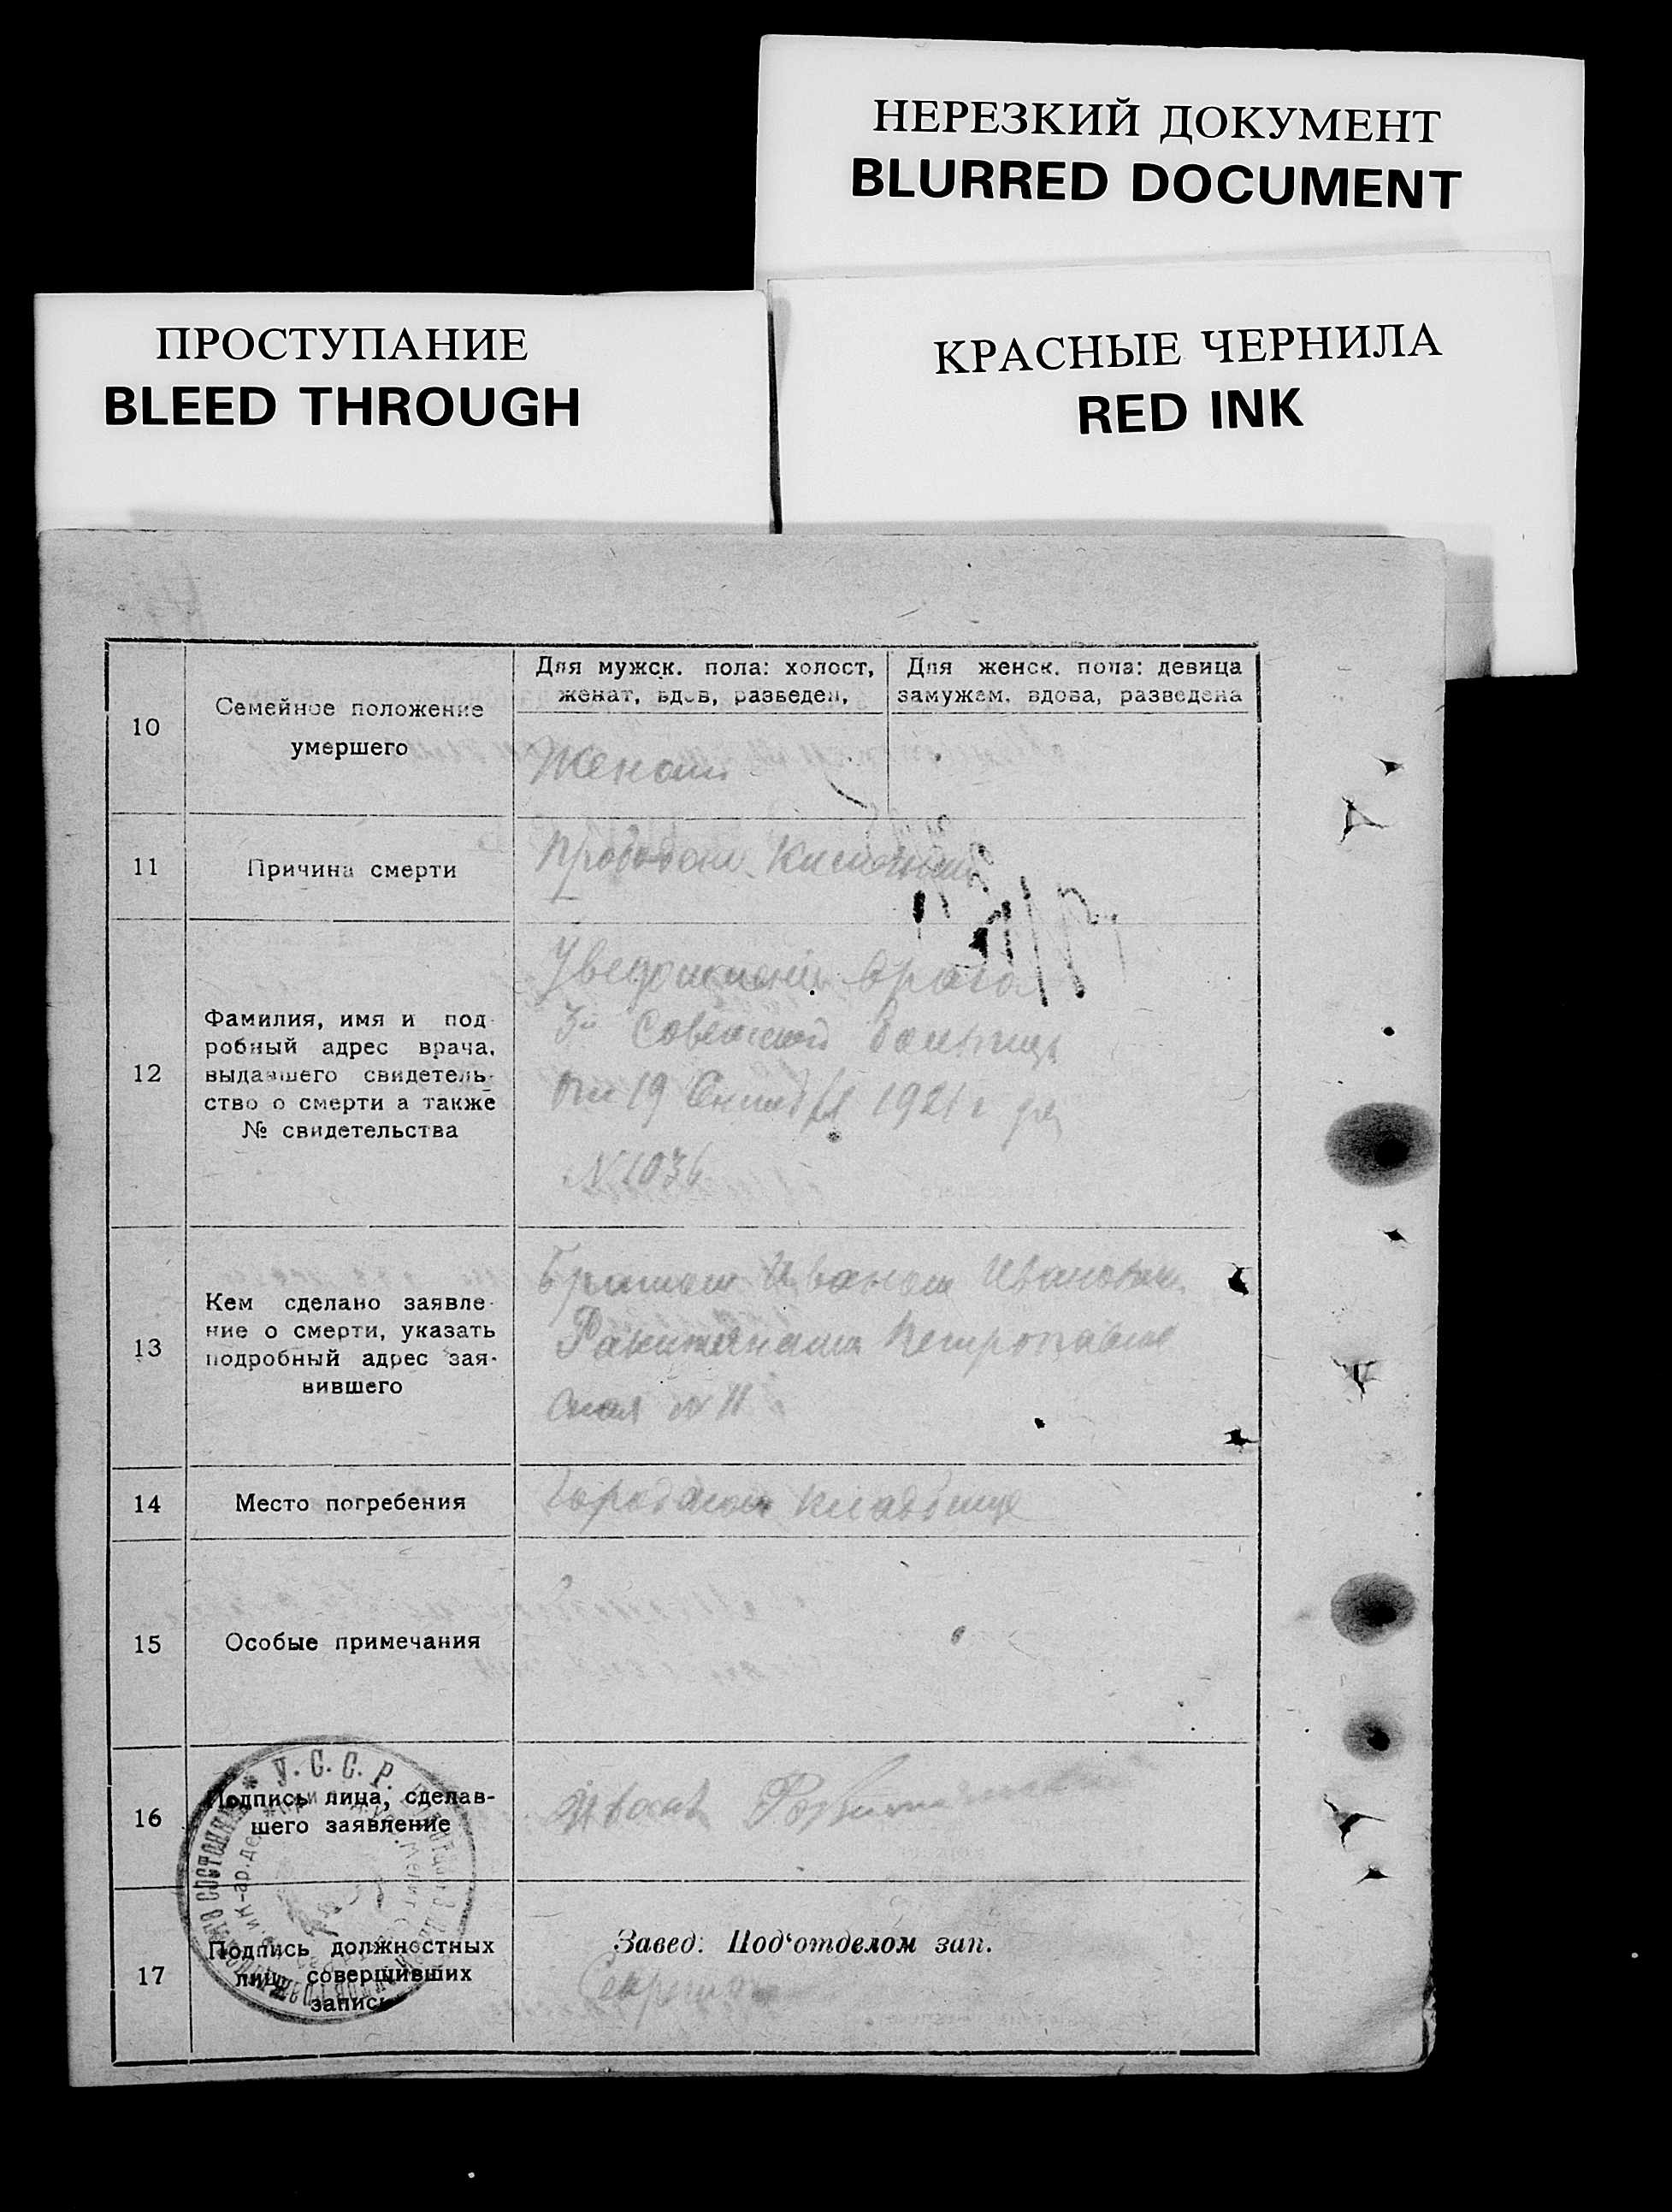 НЕРЕЗКИЙ ДОКУМЕНТ
BLURRED DOCUMENT
ПРОСТУПАНИЕ
BLEED THROUGH
КРАСНЫЕ ЧЕРНИЛА
RED INK
10
Семейное положение
умершего
Для мужск. пола: холост,
женат, вдов, разведен,
Для женск. пола: девица
замужем, вдова, разведена
Женат
11
Причина смерти
12
Фамилия, имя и под-
робный адрес врача,
выдавшего свидетель-
ство о смерти а также
№ свидетельства
врача
3й Советской больницы
от 19 1921 г
N 1036
13
Кем сделано заявле-
ние о смерти, указать
подробный адрес зая-
вившего
Иваном Ивановичем
Петропавлов
ская № 11
14
Место погребения
Городском кладбище
15
Особые примечания
16
Подпись лица, сделав-
шего заявление
17
Подпись должностных
лиц, совершивших
запись
Завед: Под‘отделом зап.
У. С. С. Р.